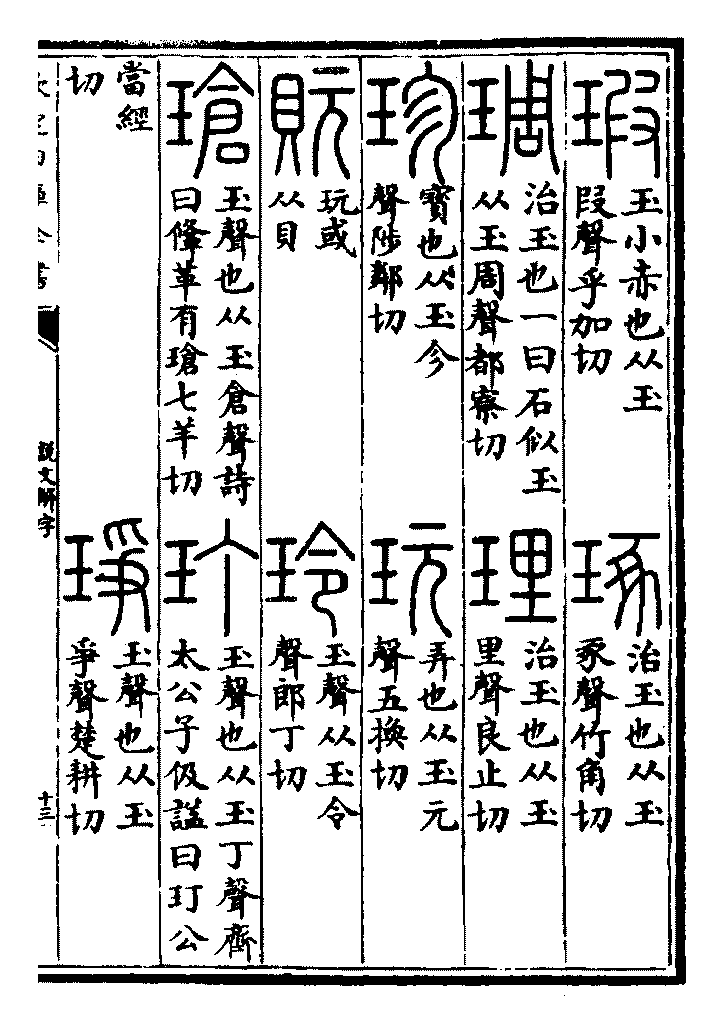 瑕
玉小赤也从玉
叚聲乎加切
琢
治玉也从玉
豖聲竹角切
琱
治玉也一曰石似玉
从玉周聲都寮切
理
治玉也从玉
里聲良止切
珍
寶也从玉今
聲陟鄰切
玩
弄也从玉元
聲五換切
貦
玩或
从貝
玲
玉聲从玉令
聲郎丁切
瑲
玉聲也从玉倉聲詩
曰鞗革有瑲七羊切
玎
玉聲也从玉丁聲齊
太公子伋諡曰玎公
當經
切
琤
玉聲也从玉
爭聲楚耕切
欽定四庫全書
說文解字
十三